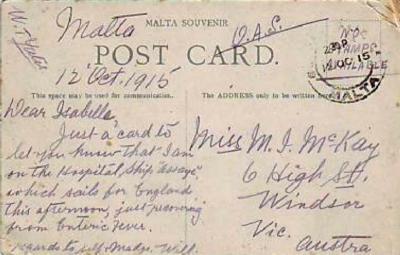 W. Yates
Malta
MALTA SOUVENIR
O.A.S.
NO
STAMPS
AVAILABLE
POST CARD.
12 OC 15
MALTA
12 Oct. 1915
This space may be used for communication.
The ADDRESS only to be written here.
Dear Isabella,
Just a card to
let you know that I am
on the Hospital Ship "Assaye"
which sails for England
this afternoon, just recovering
from Enteric Fever.
regards to self. Madge. Will.
Miss M. I. McKay
6 High St.
Windsor
Vic.
Austra